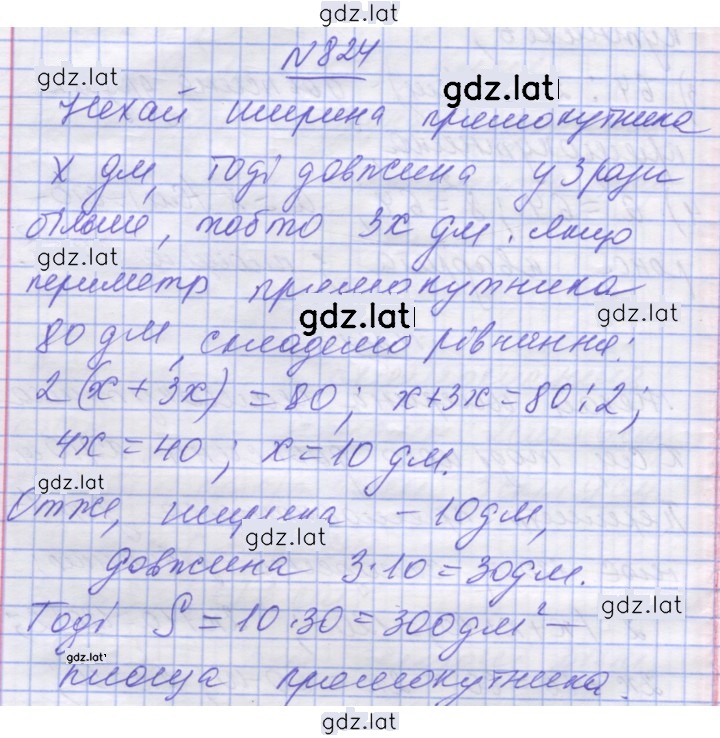 gdz.lat
N824
gdz.lat
gdz.lat
Нехай ширина прямокутника
х дм, тоді довжина у 3 рази
більше, тобто 3х дм. Якщо
gdz.lat
периметр прямокутника
gdz.lat
gdz.lat
80 дм, складемо рівняння:
2(х + 3х) = 80; х+3х = 80:2;
4х = 40; х = 10 дм.
gdz.lat
Отже, ширина – 10 дм,
gdz.lat
довжина 3·10 = 30 дм.
gdz.lat
Тоді S = 10·30 = 300 дм² –
gdz.lat
площа прямокутника.
gdz.lat